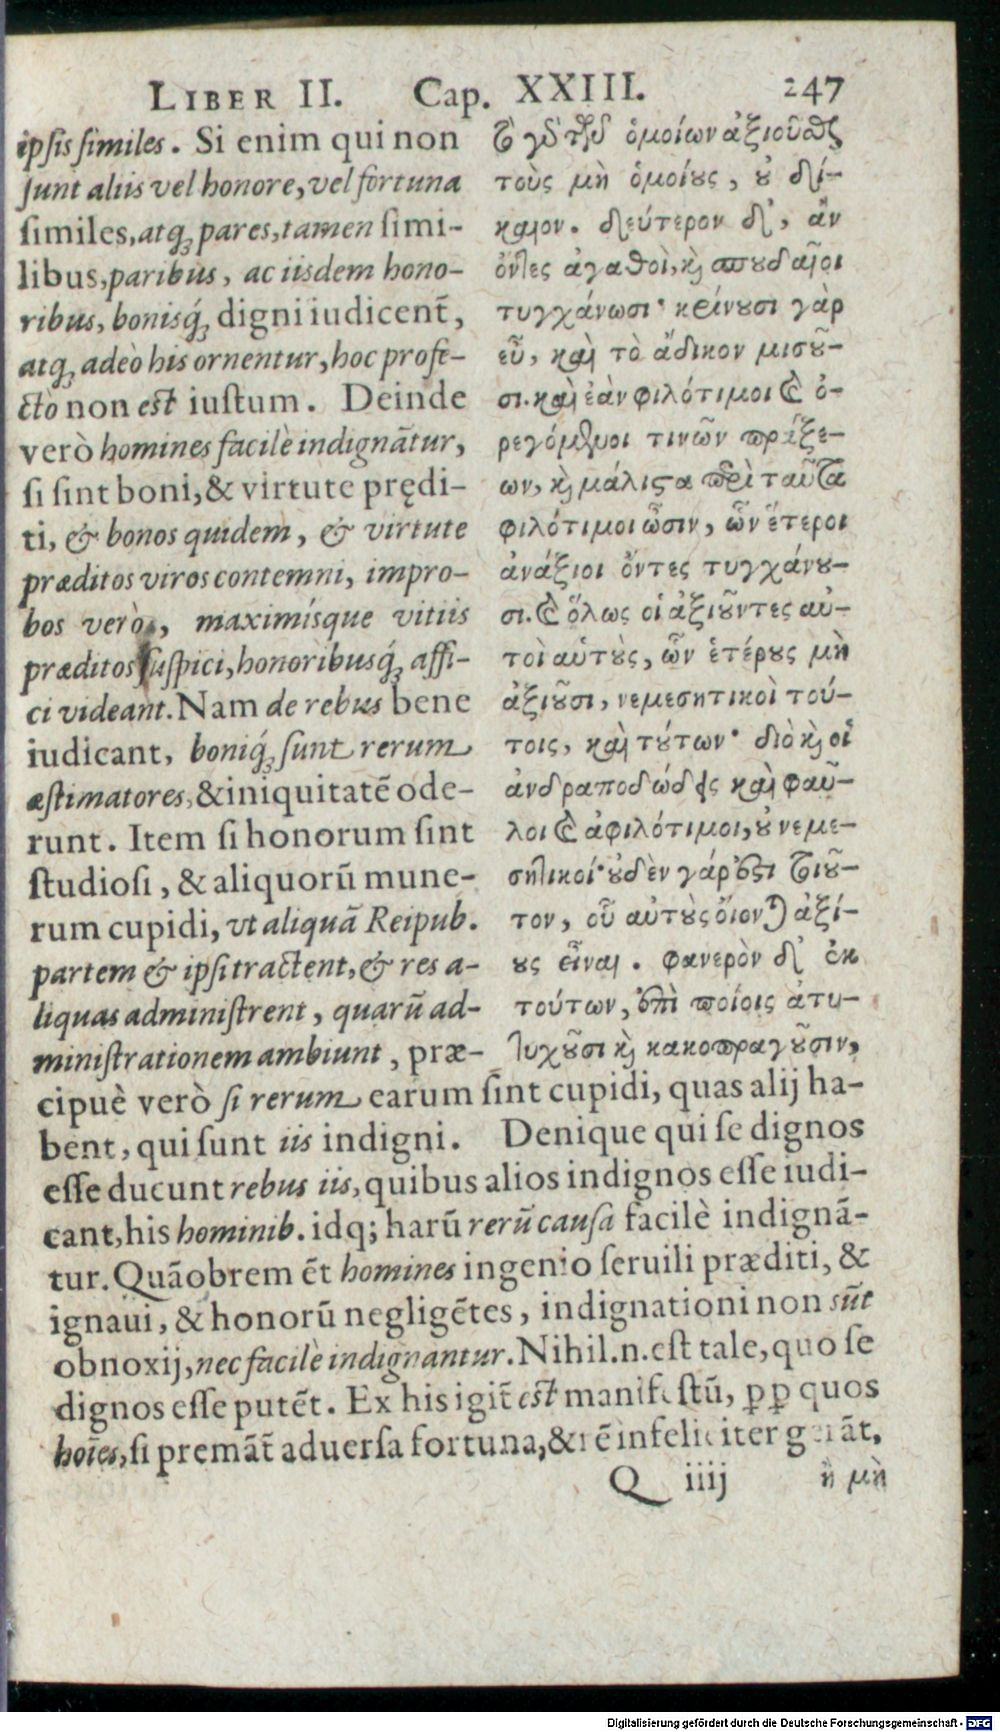 LIBER II. Cap. XXIII. 247
ipsis similes. Si enim qui non
sunt aliis vel honore, vel fortuna
similes, atq; pares, tamen simi-
libus, paribus, ac iisdem hono-
ribus, bonisq́; digni iudicent̃,
atq; adeò his ornentur, hoc profe-
ctò non est iustum. Deinde
verò homines facilè indignãtur,
si sint boni, & virtute prędi-
ti, & bonos quidem, & virtute
præditos viros contemni, impro-
bos verò, maximísque vitiis
præditos suspici, honoribusq́; affi-
ci videant. Nam de rebus bene
iudicant, boniq́; sunt rerum
æstimatores, & iniquitatẽ ode-
runt. Item si honorum sint
studiosi, & aliquorũ mune-
rum cupidi, vt aliquã Reipub.
partem & ipsi tractent, & res a-
liquas administrent, quarũ ad-
ministrationem ambiunt, præ-
τὸ γὰρ τῶν ὁμοίων ἀξιοῦσθαι
τοὺς μὴ ὁμοίους, οὐ δί-
καιον. δεύτερον δ', ἂν
ὄντες ἀγαθοὶ, καὶ σπουδαῖοι
τυγχάνωσι· κρίνουσι γὰρ
εὖ, καὶ τὸ ἄδικον μισοῦ-
σι. καὶ ἐὰν φιλότιμοι καὶ ὀ-
ρεγόμενοι τινῶν πράξε-
ων, καὶ μάλιστα περὶ ταῦτα
φιλότιμοι ὦσιν, ὧν ἕτεροι
ἀνάξιοι ὄντες τυγχάνου-
σι. καὶ ὅλως οἱ ἀξιοῦντες αὐ-
τοὶ αὑτοὺς, ὧν ἑτέρους μὴ
ἀξιοῦσι, νεμεσητικοὶ τού-
τοις, καὶ τούτων· διὸ καὶ οἱ
ἀνδραποδώδεις καὶ φαῦ-
λοι καὶ ἀφιλότιμοι, οὐ νεμε-
σητικοί· οὐδὲν γάρ ἐστι τοιοῦ-
τον, οὗ αὑτοὺς οἴονται ἀξί-
ους εἶναι. φανερὸν δ' ἐκ
τούτων, ἐπὶ ποίοις ἀτυ-
χοῦσι καὶ κακοπραγοῦσιν,
cipuè verò si rerum earum sint cupidi, quas alij ha-
bent, qui sunt iis indigni. Denique qui se dignos
esse ducunt rebus iis, quibus alios indignos esse iudi-
cant, his hominib. idq; harũ rerũ causa facilè indignã-
tur. Quãobrem ẽt homines ingenio seruili præditi, &
ignaui, & honorũ negligẽtes, indignationi non sũt
obnoxij, nec facilè indignantur. Nihil.n.est tale, quo se
dignos esse putẽt. Ex his igit̃ est manifestũ, ꝓꝑ quos
hoĩes, si premãt̃ aduersa fortuna, & rẽ infeliciter gerãt,
Q iiij ἢ μὴ
Digitalisierung gefördert durch die Deutsche Forschungsgemeinschaft - DFG